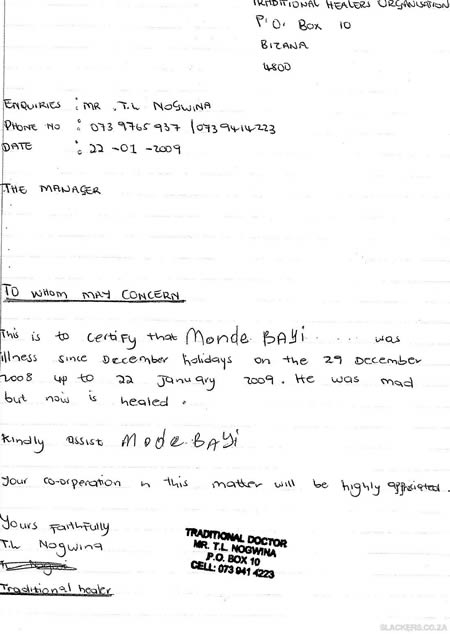 TRADITIONAL HEALERS ORGANISATION
P.O. Box 10
BIZANA
4800
ENQUIRIES : MR .T.L NOGWINA
PHONE NO : 073 9765 937 / 073 9414223
DATE : 22 -01 -2009
THE MANAGER
TO WHOM MAY CONCERN
This is to certify that Monde BAYi .... was
illness since December holidays on the 29 December
2008 up to 22 January 2009. He was mad
but now is healed.
Kindly assist Mode BAYi
Your co-orperation in this matter will be highly
Yours Faithfully
T.L Nogwina
Traditional healer
TRADITIONAL DOCTOR
MR. T.L. NOGWINA
P.O. BOX 10
CELL: 073 941 4223
SLACKERS.CO.ZA